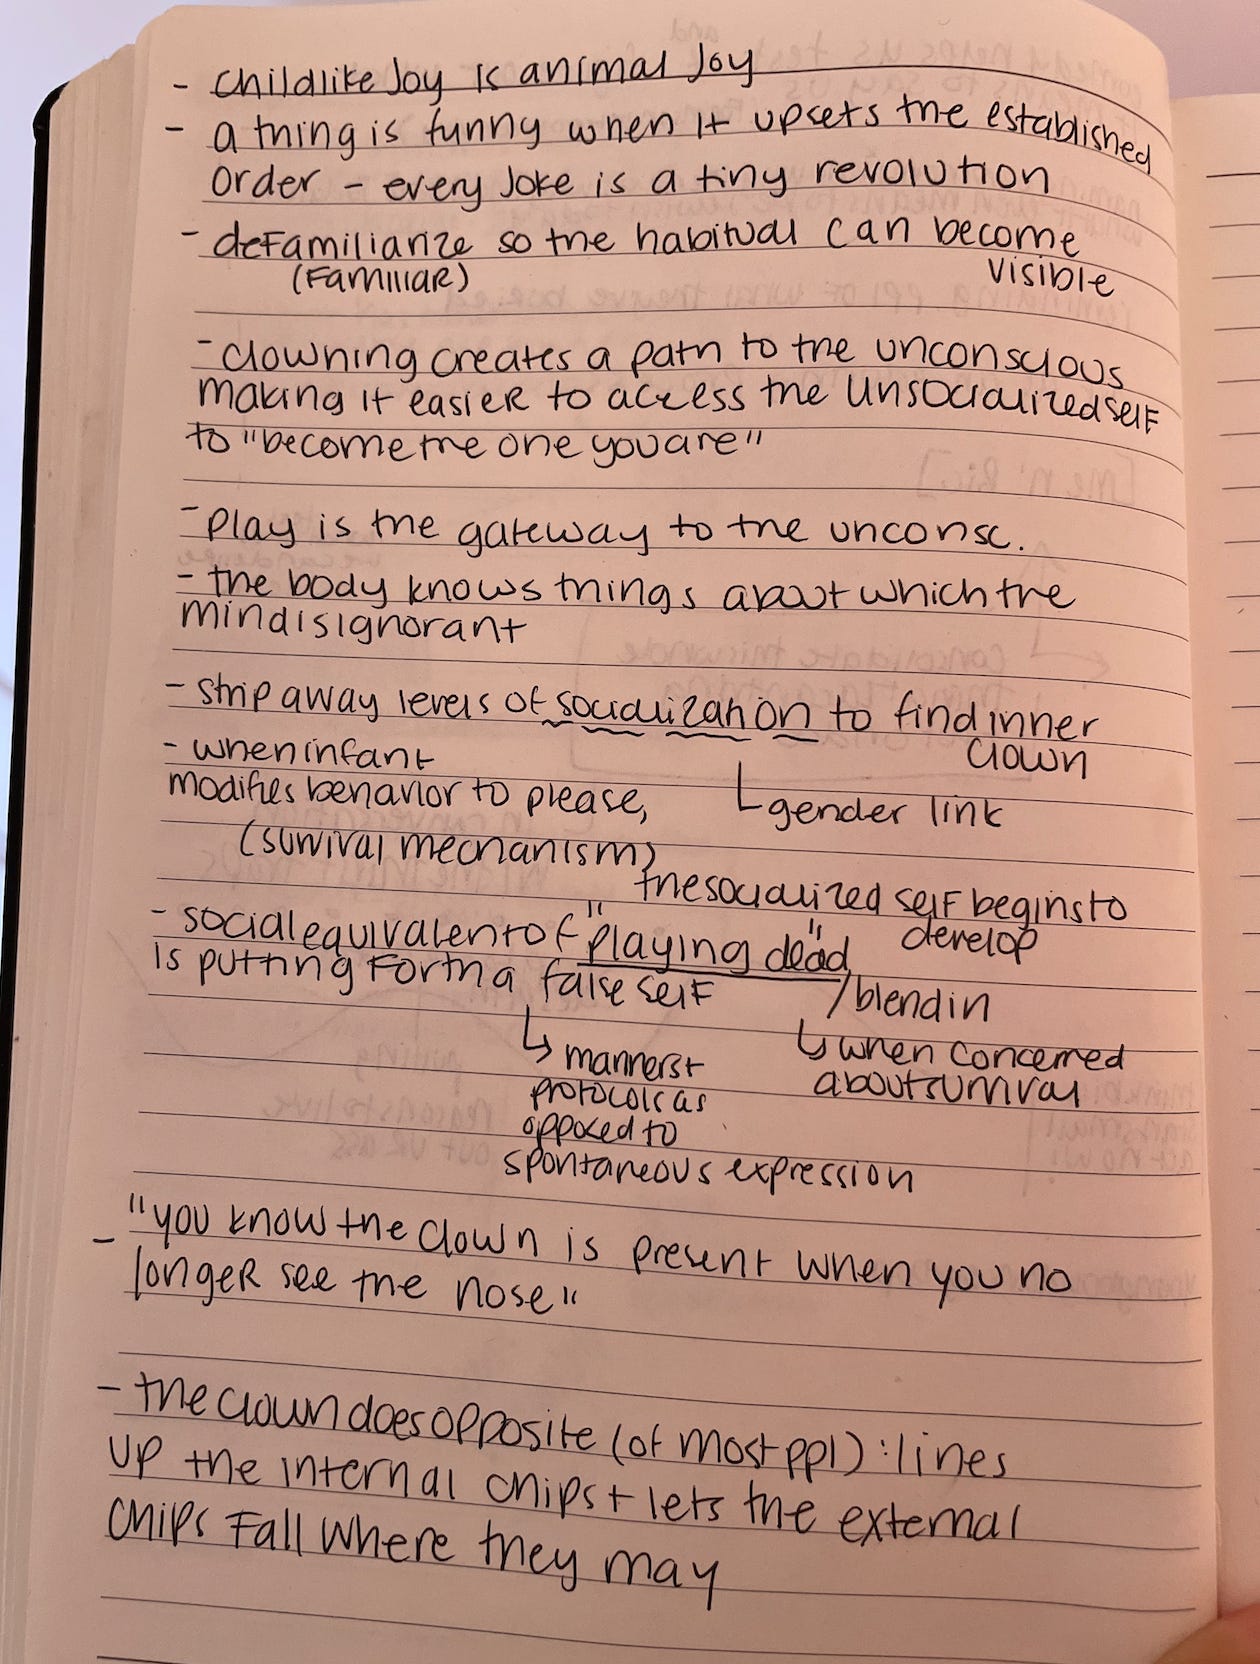 - childlike Joy is animal Joy
- a thing is funny when it upsets the established
order - every Joke is a tiny revolution
- defamiliarize so the habitual can become
(familiar) visible
- clowning creates a path to the unconscious
making it easier to access the unsocialized self
to "become the one you are"
- play is the gateway to the unconsc.
- the body knows things about which the
mind is ignorant
- strip away levels of socialization to find inner
clown
- when infant
modifies behavior to please,
gender link
(survival mechanism)
the socialized self begins to
develop
- social equivalent of "playing dead"
is putting forth a false self
/blend in
↳ manners +
protocols as
opposed to
spontaneous expression
↳ when concerned
about survival
- "you know the clown is present when you no
longer see the nose"
- the clown does opposite (of most ppl): lines
up the internal chips + lets the external
chips fall where they may